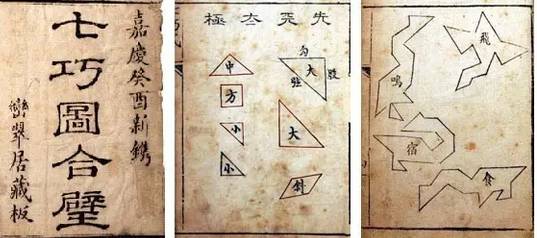 嘉慶癸酉新鐫
七巧圖合璧
翠居藏板
先天太極
勾
股
大
弦
大
斜
中
方
小
小
飛
鳴
宿
食